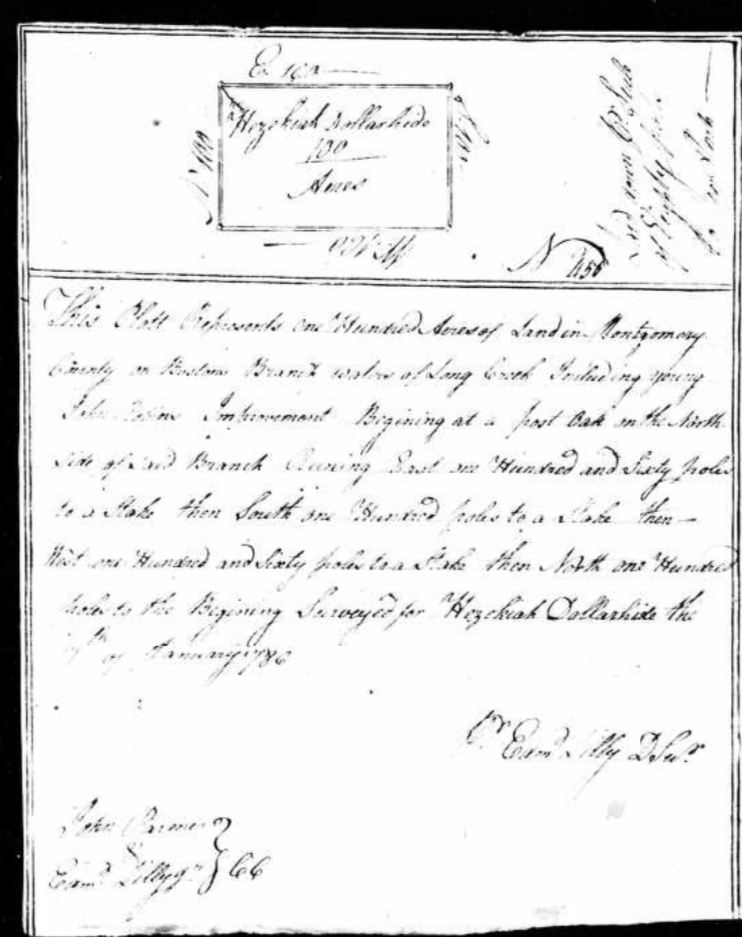 E 160
Hezekiah Dollarhide
100
Acres
N 100
W 160
Laid down by Scale
of Eighty poles
N 456
This Platt Represents one Hundred Acres of Land in Montgomery
County on Branch waters of Long Creek Including young
John Improvement Begining at a post Oak on the North
Side of Said Branch Runing East one Hundred and Sixty poles
to a Stake then South one Hundred poles to a Stake then
West one Hundred and Sixty poles to a Stake then North one Hundred
poles to the Begining Surveyed for Hezekiah Dollarhide the
of January 1786
Pr Edmd Lilly D Sur
John
Edmd Lilly Jr } CC